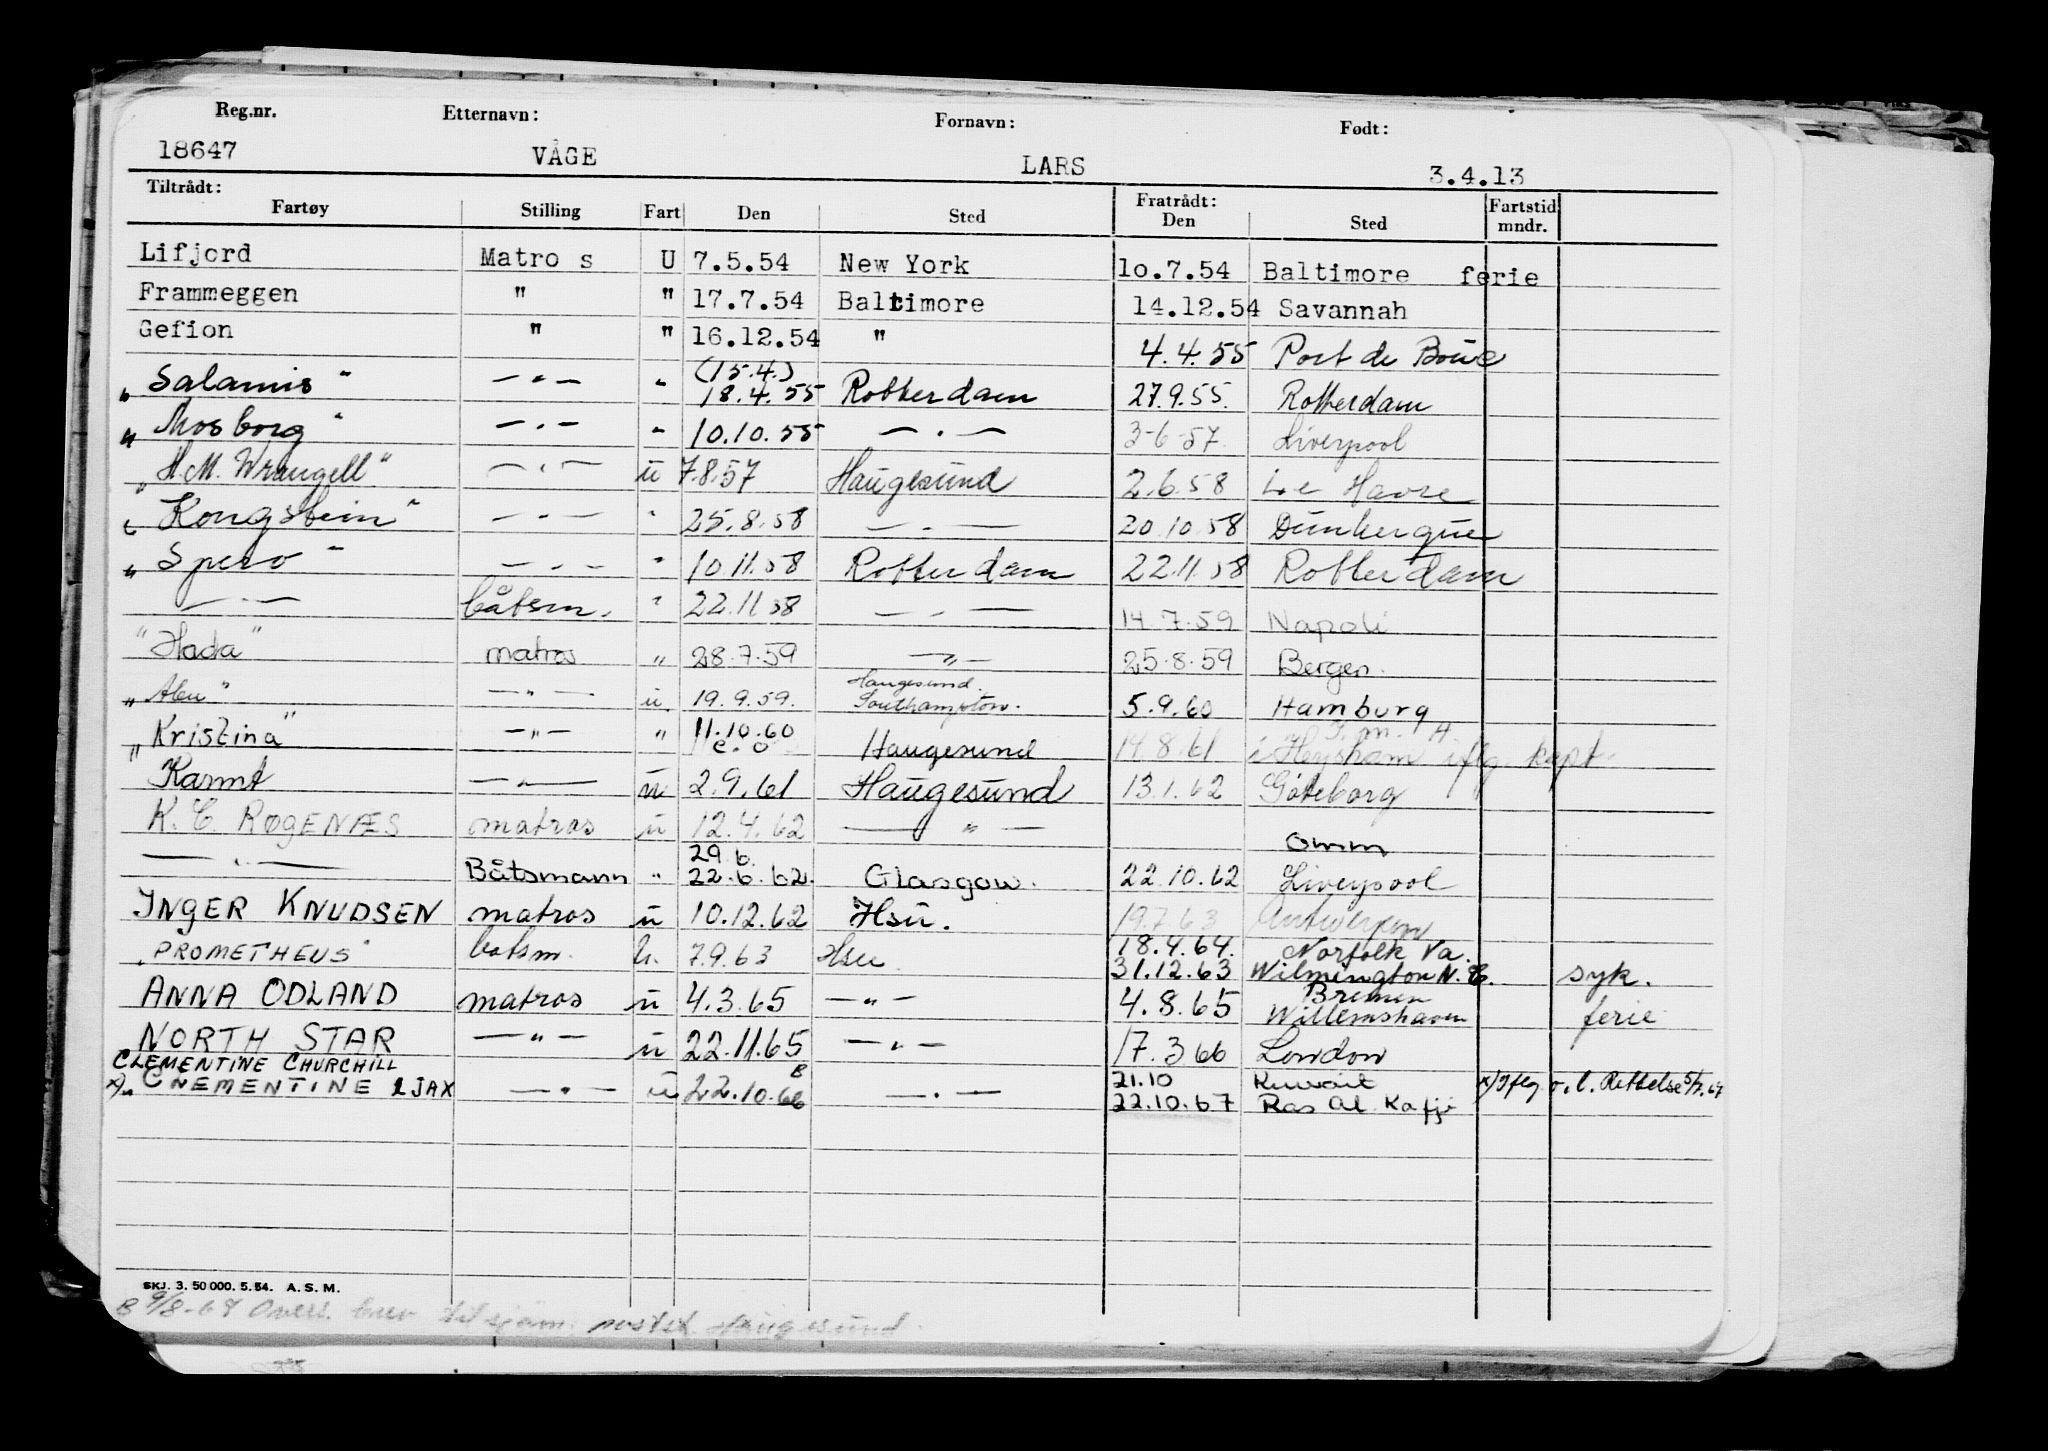 Reg.nr. Etternavn: Fornavn: Født:
18647 VÅGE LARS 3.4.13
Tiltrådt: Fratrådt:
Fartøy Stilling Fart Den Sted Den Sted Fartstid mndr.
Lifjord Matro s U 7.5.54 New York 10.7.54 Baltimore ferie
Frammeggen " " 17.7.54 Baltimore 14.12.54 Savannah
Gefion " " 16.12.54 " 4.4.55 Port de Bouc
"Salamis" — " — " (15.4.) 18.4.55 Rotterdam 27.9.55. Rotterdam
"Mosborg" — " — " 10.10.55 — " — 3-6-57. Liverpool
"H.M. Wrangell" — " — u 7.8.57 Haugesund 2.6.58 Le Havre
"Kongstein" — " — " 25.8.58 — " — 20.10.58 Dunkerque
"Spero" — " — " 10.11.58 Rotterdam 22.11.58 Rotterdam
— " — båtsm. " 22.11.58 — " — 14.7.59 Napoli
"Hada" matros " 28.7.59 — " — 25.8.59 Bergen.
"Aleu" — " — u. 19.9.59. Haugesund. Southampton. 5.9.60 Hamburg
"Kristina" — " — " 11.10.60 Haugesund 14.8.61 i Heysham iflg. kapt.
Karmt — " — u 2.9.61 Haugesund 13.1.62 Göteborg
K. C. ROGENÆS matros u 12.4.62 — " — omm
— " — Båtsmann " 29.6. 22.6.62. Glasgow. 22.10.62 Liverpool
INGER KNUDSEN matros u 10.12.62 Hsu. 19.7.63 Antwerpen
"PROMETHEUS" botsm. u. 7.9.63 Hsu 18.4.64. Norfolk Va.
31.12.63 Wilmington N.C. syk.
ANNA ODLAND matros u 4.3.65 — " — 4.8.65 Bremen Willemshaven ferie
NORTH STAR — " — u 22.11.65 — " — 17.3 66 London
CLEMENTINE CHURCHILL
x) " CLEMENTINE LJAX — " — u 22.10.66 — " — 21.10 Kuwait x) Iflg o.l. Rettelse 5/7.67
22.10.67 Ras Al. Kafji
SKJ. 3. 50 000. 5. 54. A. S. M.
B 9/8-67 Overs. brev til sjøm. postst. Haugesund.